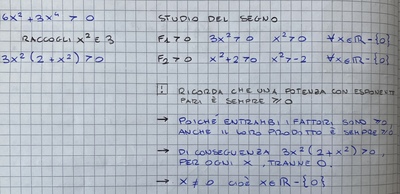 6x² + 3x⁴ > 0
RACCOGLI x² E 3
3x² (2 + x²) > 0
STUDIO DEL SEGNO
F₁ > 0 3x² > 0 x² > 0 ∀x∈ℝ-{0}
F₂ > 0 x² + 2 > 0 x² > -2 ∀x∈ℝ-{0}
! RICORDA CHE UNA POTENZA CON ESPONENTE
PARI È SEMPRE ≥ 0
→ POICHÉ ENTRAMBI I FATTORI SONO ≥ 0
ANCHE IL LORO PRODOTTO È SEMPRE ≥ 0
→ DI CONSEGUENZA 3x² (2 + x²) > 0,
PER OGNI X, TRANNE 0.
→ X ≠ 0 CIOÈ X∈ℝ-{0}